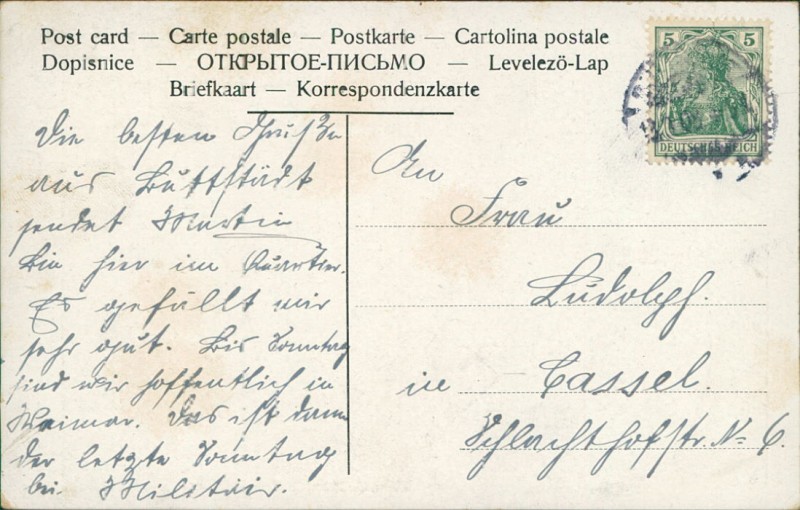 Post card — Carte postale — Postkarte — Cartolina postale
Dopisnice — ОТКРЫТОЕ-ПИСЬМО — Levelezö-Lap
Briefkaart — Korrespondenzkarte
5 5
DEUTSCHES REICH
Die besten Grüße
aus Buttstädt
sendet Martin
Bin hier im Quartier.
Es gefällt mir
sehr gut. Bis Sonntag
sind wir hoffentlich in
Weimar. Das ist dann
der letzte Sonntag
bei Militär.
An
Frau
Ludolph.
in Cassel.
Schlachthofstr. No 6.